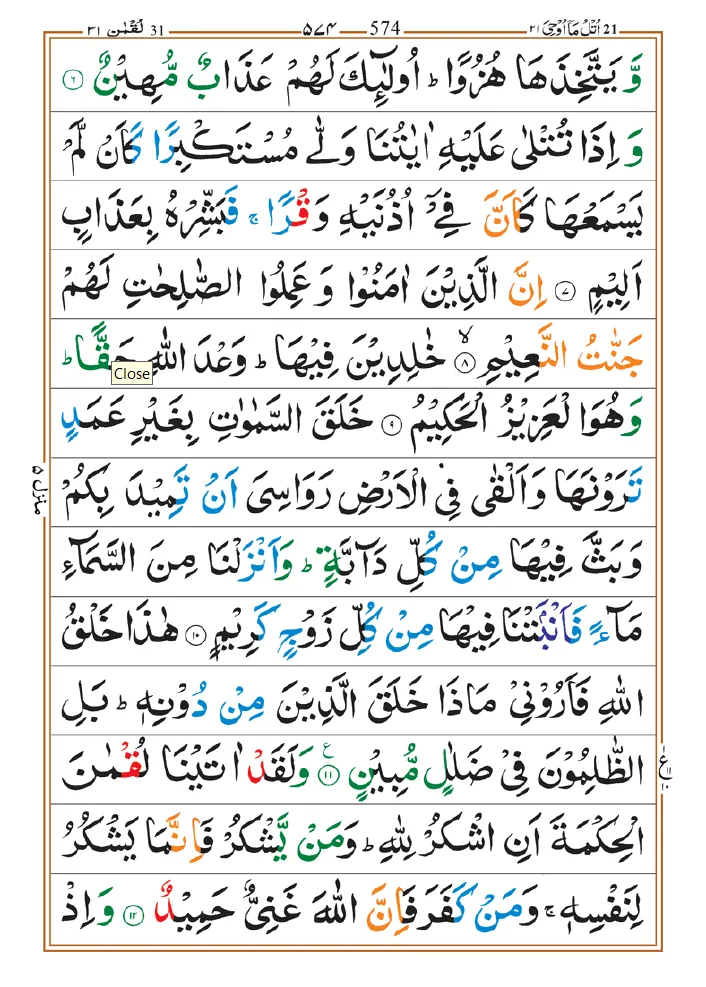 21 اُتْلُ مَاۤ اُوْحِیَ ۲۱ 574 ۵۷۴ 31 لُقْمٰن ۳۱
وَّ یَتَّخِذَهَا هُزُوًا ؕ اُولٰٓئِكَ لَهُمْ عَذَابٌ مُّهِیْنٌ ۶
وَ اِذَا تُتْلٰی عَلَیْهِ اٰیٰتُنَا وَلّٰی مُسْتَكْبِرًا كَاَنْ لَّمْ
یَسْمَعْهَا كَاَنَّ فِیْۤ اُذُنَیْهِ وَقْرًا ۚ فَبَشِّرْهُ بِعَذَابٍ
اَلِیْمٍ ۷ اِنَّ الَّذِیْنَ اٰمَنُوْا وَ عَمِلُوا الصّٰلِحٰتِ لَهُمْ
جَنّٰتُ النَّعِیْمِ ۙ ۸ خٰلِدِیْنَ فِیْهَا ؕ وَعْدَ اللّٰهِ حَقًّا ؕ
Close
وَهُوَا لْعَزِیْزُ الْحَكِیْمُ ۹ خَلَقَ السَّمٰوٰتِ بِغَیْرِ عَمَدٍ
تَرَوْنَهَا وَاَلْقٰی فِی الْاَرْضِ رَوَاسِیَ اَنْ تَمِیْدَ بِكُمْ
وَبَثَّ فِیْهَا مِنْ كُلِّ دَآبَّةٍ ؕ وَاَنْزَلْنَا مِنَ السَّمَآءِ
مَآءً فَاَنْۢبَتْنَا فِیْهَا مِنْ كُلِّ زَوْجٍ كَرِیْمٍ ۱۰ هٰذَا خَلْقُ
اللّٰهِ فَاَرُوْنِیْ مَاذَا خَلَقَ الَّذِیْنَ مِنْ دُوْنِهٖ ؕ بَلِ
الظّٰلِمُوْنَ فِیْ ضَلٰلٍ مُّبِیْنٍ ع ۱۱ وَلَقَدْ اٰتَیْنَا لُقْمٰنَ
الْحِكْمَةَ اَنِ اشْكُرْ لِلّٰهِ ؕ وَمَنْ یَّشْكُرْ فَاِنَّمَا یَشْكُرُ
لِنَفْسِهٖ ۚ وَمَنْ كَفَرَ فَاِنَّ اللّٰهَ غَنِیٌّ حَمِیْدٌ ۱۲ وَاِذْ
منزل ۵